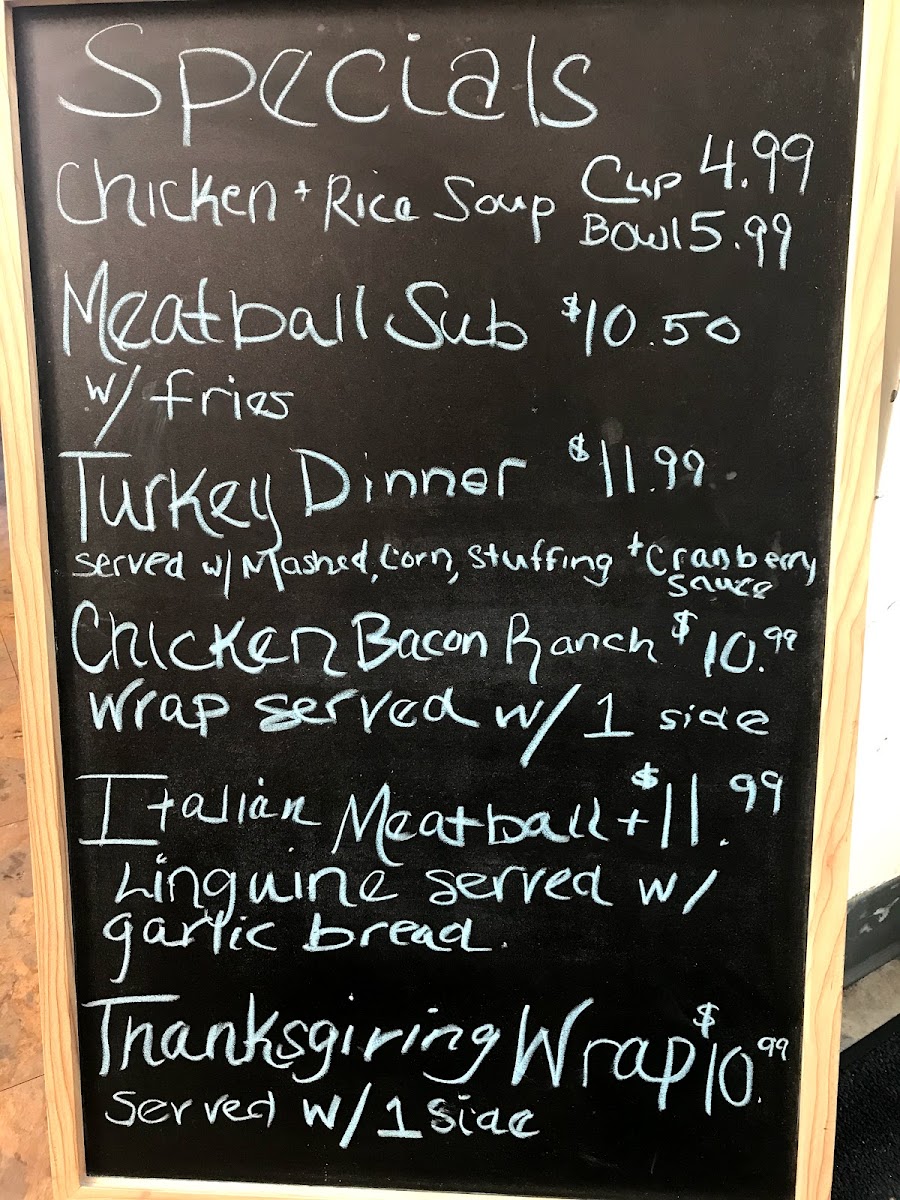 Specials
Chicken + Rice Soup Cup 4.99
Bowl 5.99
Meatball Sub $10.50
w/ fries
Turkey Dinner $11.99
served w/ Mashed, Corn, Stuffing + Cranberry
sauce
Chicken Bacon Ranch $10.99
Wrap served w/ 1 side
Italian Meatball + $11.99
Linguine served w/
garlic bread.
Thanksgiving Wrap $10.99
Served w/ 1 Side